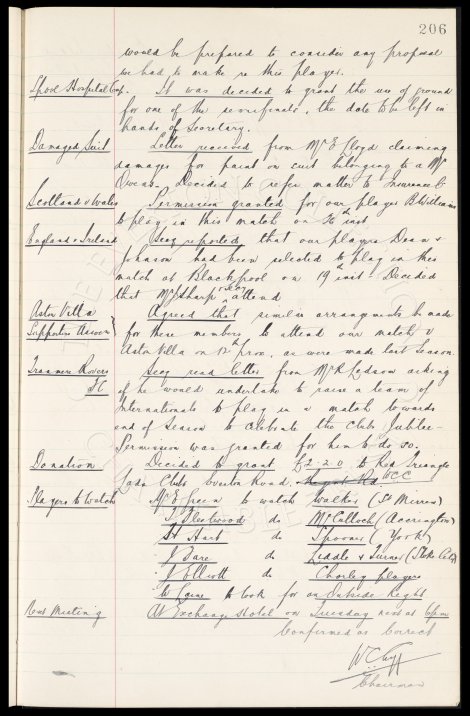 206
would be prepared to consider any proposal
we had to make re this player.
Lpool Hospital Cup. It was decided to grant the use of ground
for one of the semifinals, the date to be left in
hands of Secretary.
Damaged Suit Letter received from Mr E Lloyd claiming
damages for paint on suit belonging to a Mr
Owens. Decided to refer matter to Insurance Co
Scotland v Wales Permission granted for our player B. Williams
to play in this match on 26th inst.
England v Ireland Secy reported that our players Dean &
Johnson had been selected to play in this
match at Blackpool on 19th inst. Decided
that Mr Sharp & Secy attend
Aston Villa Agreed that similar arrangements be made
Supporters Assocn for these members to attend our match v
Aston Villa on 12th prox. as were made last season.
Tranmere Rovers Secy read letter from Mr R Ledsom asking
FC if he would undertake to raise a team of
Internationals to play in a match towards
end of Season to celebrate the Clubs Jubilee.
Permission was granted for him to do so.
Donation Decided to grant £2-2-0 to Red Triangle
Lads Club Everton Road. WCC
Players to Watch Mr E Green to watch Walker (St Mirren)
T Fleetwood do McCulloch (Accrington)
St Hart do Spooner (York)
J Dare do Liddle & Turner (Stoke City)
J Elliott do Chorley players
W Lowe to look for an Outside Right
Next Meeting At Exchange Hotel on Tuesday next at 6pm
Confirmed as Correct
W C Cuff
Chairman